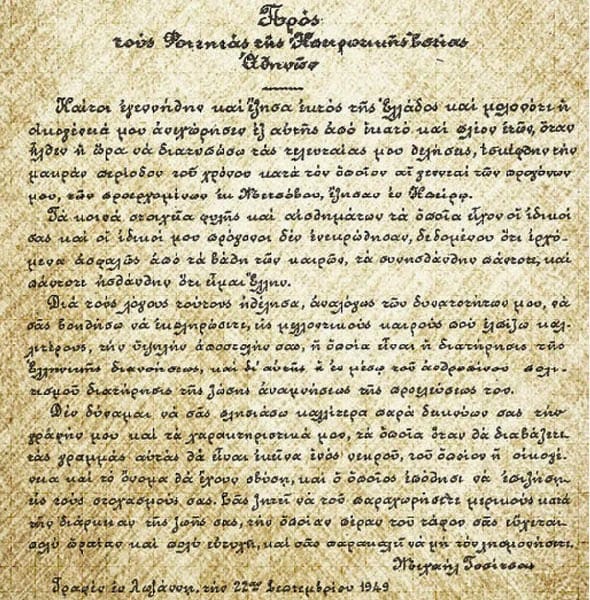 Πρὸς
τοὺς Φοιτητὰς τῆς Ἠπειρωτικῆς Ἑστίας
Ἀθηνῶν
Καίτοι ἐγεννήθην καὶ ἔζησα ἐκτὸς τῆς Ἑλλάδος καὶ μολονότι ἡ
οἰκογένειά μου ἀνεχώρησεν ἐξ αὐτῆς ἀπὸ ἑκατὸ καὶ πλέον ἐτῶν, ὅταν
ἦλθεν ἡ ὥρα νὰ διατυπώσω τὰς τελευταίας μου θελήσεις, ἐσκέφθην τὴν
μακρὰν περίοδον τοῦ χρόνου κατὰ τὸν ὁποῖον αἱ γενεαὶ τῶν προγόνων
μου, τῶν προερχομένων ἐκ Μετσόβου, ἔζησαν ἐν Ἠπείρῳ.
Τὰ κοινὰ στοιχεῖα ψυχῆς καὶ αἰσθημάτων τὰ ὁποῖα εἶχον οἱ ἰδικοί
σας καὶ οἱ ἰδικοί μου πρόγονοι δὲν ἐνεκρώθησαν, δεδομένου ὅτι ἐρχό-
μενα ἀσφαλῶς ἀπὸ τὰ βάθη τῶν καιρῶν, τὰ συνῃσθάνθην πάντοτε, καὶ
πάντοτε ᾐσθάνθην ὅτι εἶμαι Ἕλλην.
Διὰ τοὺς λόγους τούτους ἠθέλησα, ἀναλόγως τῶν δυνατοτήτων μου, νὰ
σᾶς βοηθήσω νὰ ἐκπληρώσετε, εἰς μελλοντικοὺς καιροὺς ποὺ ἐλπίζω καλ-
λιτέρους, τὴν ὑψηλὴν ἀποστολήν σας, ἡ ὁποία εἶναι ἡ διατήρησις τῆς
Ἑλληνικῆς διανοήσεως, καὶ δι' αὐτῆς, ἡ ἐν μέσῳ τοῦ ἀνθρωπίνου πολι-
τισμοῦ διατήρησις τῆς ζώσης ἀναμνήσεως τῆς προελεύσεως του.
Δὲν δύναμαι νὰ σᾶς πλησιάσω καλλίτερα παρὰ δεικνύων σας τὴν
γραφήν μου καὶ τὰ χαρακτηριστικά μου, τὰ ὁποῖα ὅταν θὰ διαβάζετε
τὰς γραμμὰς αὐτὰς θὰ εἶναι ἐκεῖνα ἑνὸς νεκροῦ, τοῦ ὁποίου ἡ οἰκογέ-
νεια καὶ τὸ ὄνομα θὰ ἔχουν σβύσῃ, καὶ ὁ ὁποῖος ἐπόθησε νὰ ἐπιζήσῃ
εἰς τοὺς στοχασμούς σας. Σᾶς ζητεῖ νὰ τοῦ παραχωρήσετε μερικοὺς κατὰ
τὴν διάρκειαν τῆς ζωῆς σας, τὴν ὁποίαν πέραν τοῦ τάφου σᾶς εὔχεται
πολὺ ὡραίαν καὶ πολὺ εὐτυχῆ, καὶ σᾶς παρακαλεῖ νὰ μὴ τὸν λησμονήσετε.
Μιχαὴλ Τοσίτσας
Γραφὲν ἐν Λωζάννῃ, τὴν 22αν Σεπτεμβρίου 1949